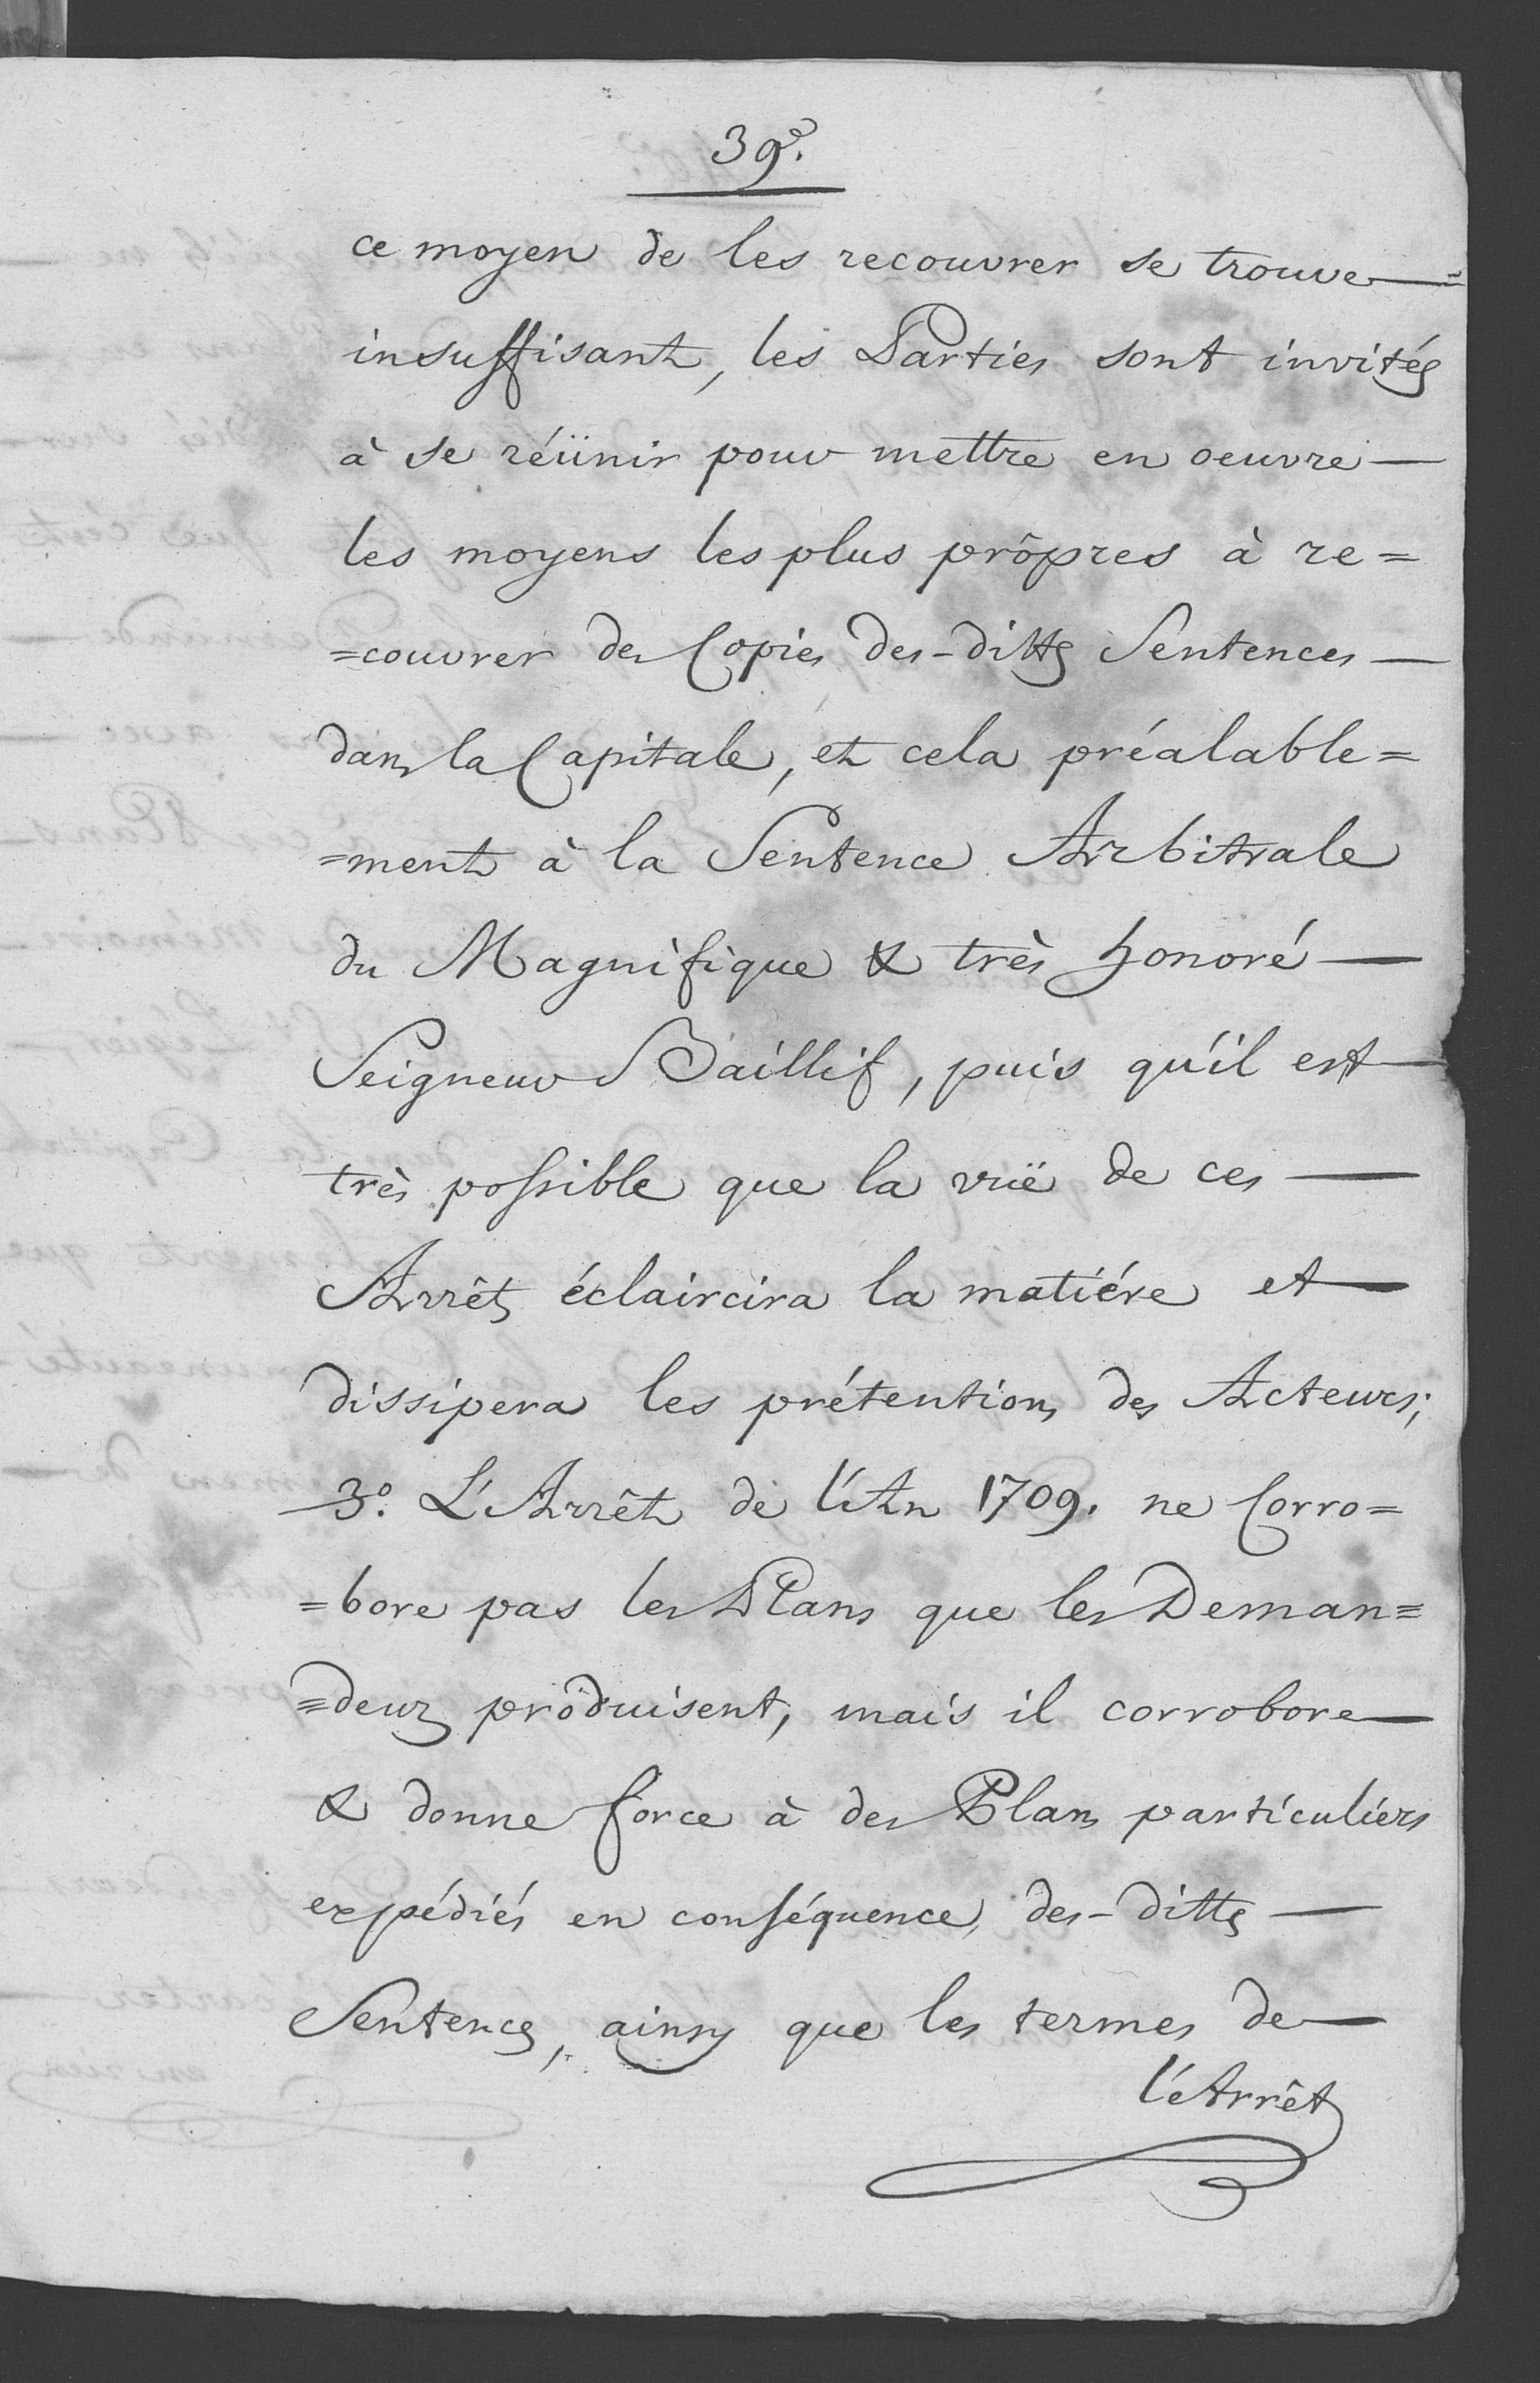 39e.
ce moyen de les recouvrer se trouve —
insuffisant, les Parties sont invités
à se réünir pour mettre en oeuvre —
les moyens les plus prôpres à re=
=couvrer des Copies des-dittes Sentences —
dans la Capitale, et cela préalable=
=ment à la Sentence Arbitrale
du Magnifique & très honoré —
Seigneur Baillif, puis qu'il est —
très possible que la vüe de ces —
Arrêts éclaircira la matiére et —
dissipera les prétentions des Acteurs;
3o. L'Arrêt de l'An 1709. ne Corro=
=bore pas les Plans que les Deman=
=deurs prôduisent, mais il corrobore —
& donne force à des Plans particuliers
expédiés en conséquence, des-dittes —
Sentences, ainsy que les termes de —
l'Arrêt